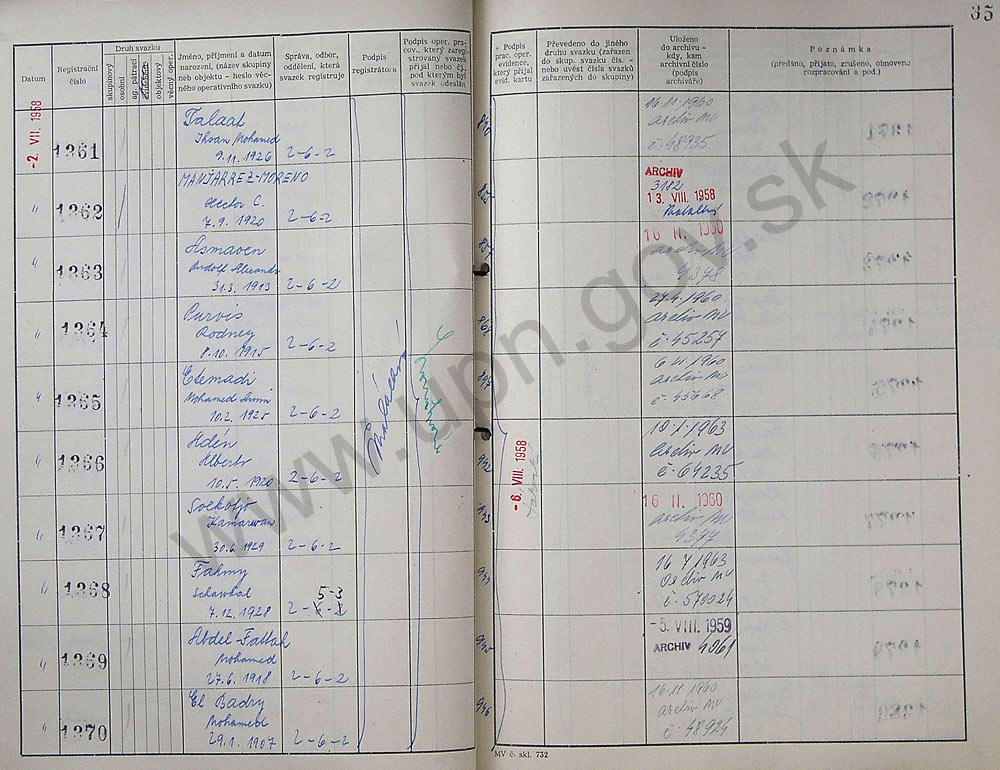 35
Datum
Registrační číslo
Druh svazku
skupinový
osobní
ag. pátrací
objektový
věcný oper.
Jméno, příjmení a datum narození, (název skupiny neb objektu - heslo věcného operativního svazku)
Správa, odbor, oddělení, která svazek registruje
Podpis registrátora
Podpis oper. prac., který zaregistrovaný svazek přijal nebo čj., pod kterým byl svazek odeslán
Podpis prac. oper. evidence, který přijal evid. kartu
Převedeno do jiného druhu svazku (zařazen do skup. svazku čís. - nebo uvést čísla svazků zařazených do skupiny)
Uloženo do archivu - kdy, kam archivní číslo (podpis archiváře)
Poznámka
(předáno, přijato, zrušeno, obnoveno rozpracování a pod.)
-2. VII. 1958
1361
Talaat
Ihsan Mohamed
9.11.1926 2-6-2
16.11.1960
archiv MV
č. 48935
1362
MANJARREZ-MORENO
Hector C.
7.9.1920 2-6-2
ARCHIV
3182
13. VIII. 1958
1363
Asmaven
Rudolf Alexandr
31.3.1913 2-6-2
16 II. 1960
archiv MV
4378
1364
Purvis
Rodney
8.10.1915 2-6-2
27.4.1960
archiv MV
č. 45257
1365
Etemadi
Mohamed Amin
10.2.1925 2-6-2
archiv MV
č. 45668
1366
Aden
Alberto
10.5.1920 2-6-2
942
10.1.1963
archiv MV
č. 64235
1367
Kamarwan
30.6.1929 2-6-2
943
16 II. 1960
archiv MV
4377
1368
Fahmy
Schawkal
5-3
7.12.1928 2-6-2
944
Archiv MV
č. 570024
1369
Abdel-Fattah
Mohamed
27.6.1918 2-6-2
945
-5. VIII 1959
ARCHIV 4061
1370
El Badry
Mohamed
29.1.1907 2-6-2
946
16.11.1960
archiv MV
č. 48924
-6. VIII. 1958
MV č. skl. 732
www.upn.gov.sk